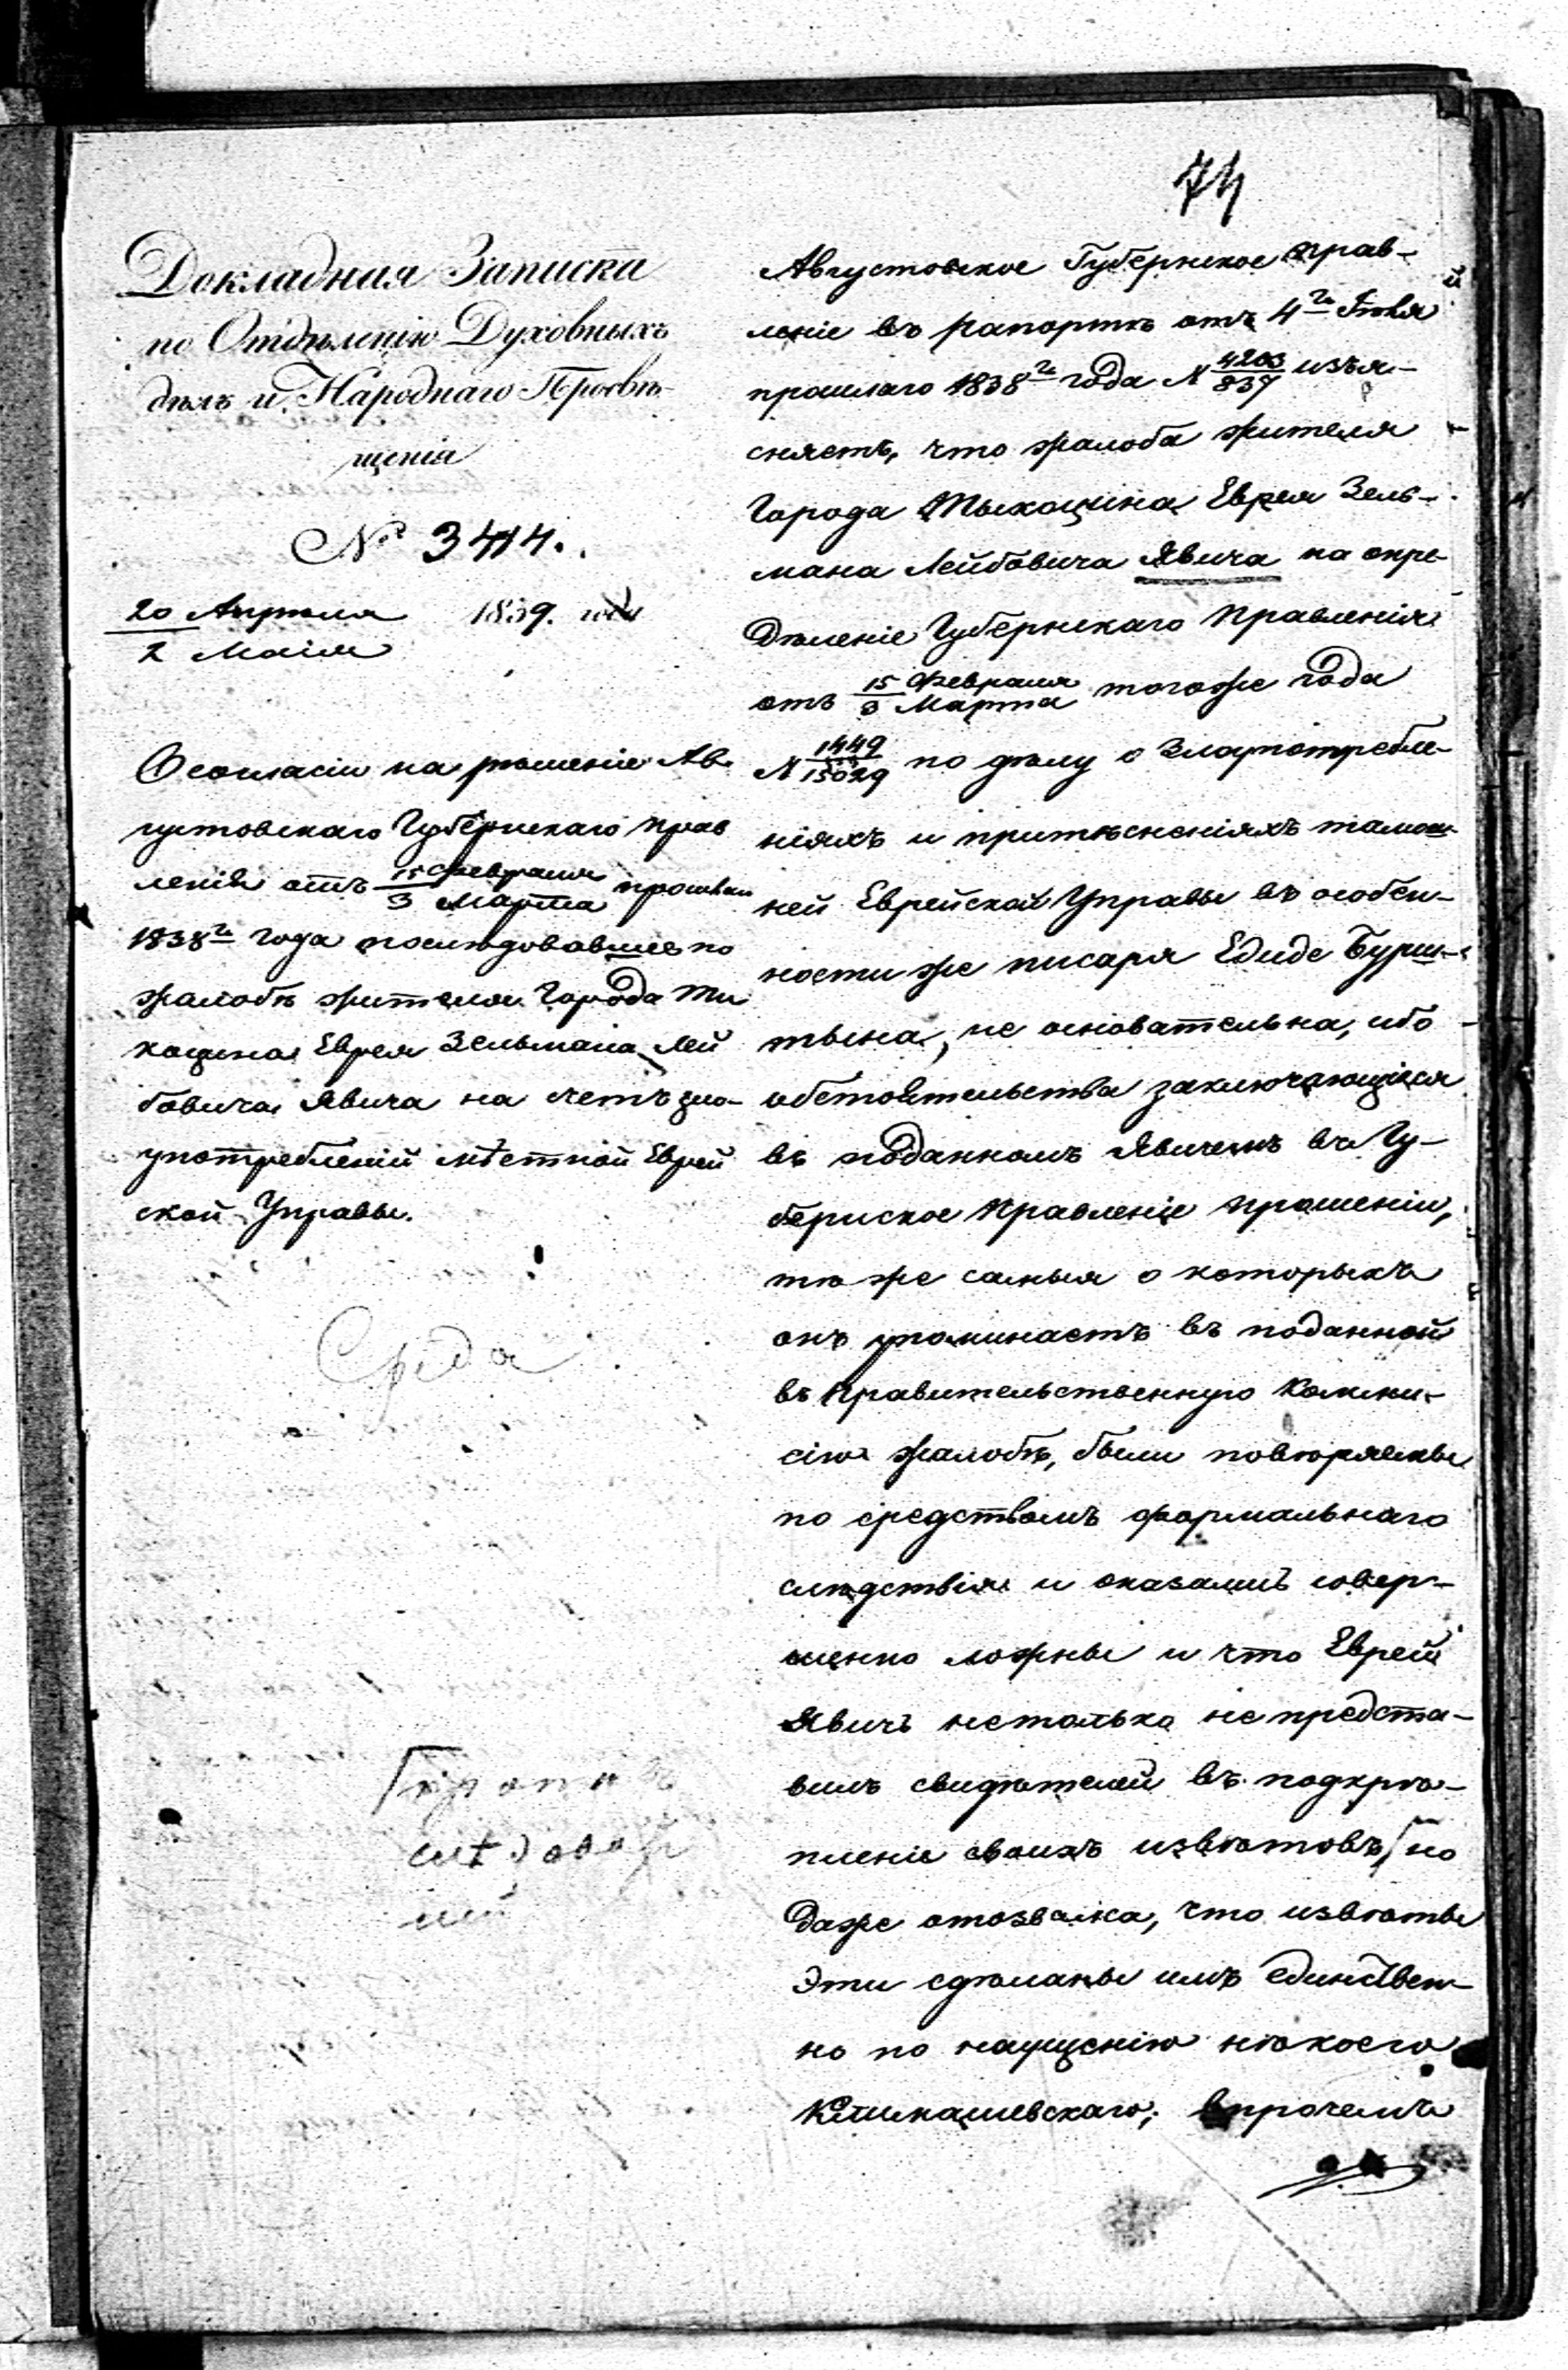 74
Докладная Записка
по Отдѣленію Духовныхъ
дѣлъ и Народнаго Просвѣ-
щенія
№ 3414.
20 Апрѣля 1839. года
2 Маія
О согласіи на рѣшеніе Ав-
густовскаго Губернскаго прав
ленія отъ 15 Февраля прошлаго
3 Марта
1838го года послѣдовавшее по
жалобѣ жителя Города Ти
коцина Еврея Зельмана Лей
бовича Явича на счетъ зло-
употребленій мѣстной Еврей
ской Управы.
Среда
Августовское Губернское прав-
леніе въ рапортѣ отъ 4го
прошлаго 1838го года № 4203/837 изъя-
сняетъ, что жалоба жителя
Города Тыкоцина Еврея Зель-
мана Лейбовича Явича на опре-
дѣленіе Губернскаго Правленія
отъ 15 Февраля тогоже года
3 Марта
№ 1449/15029 по дѣлу о Злоупотребле-
ніяхъ и притѣсненіяхъ тамош-
ней Еврейской Управы въ особен-
ности же писаря Едиде Бурш-
тына, не основательна, ибо
обстоятельства заключающіяся
въ поданномъ Явичемъ въ Гу-
бернское Правленіе прошеніи,
тѣ же самыя о которыхъ
онъ упоминаетъ въ поданной
въ Правительственную Комми-
сію жалобѣ, были повѣряемы
по средствомъ формальнаго
слѣдствія и оказались совер-
шенно ложны и что Еврей
Явичъ нетолько не предста-
вилъ свидѣтелей въ подкрѣ-
пленіе своихъ извѣтовъ, но
даже отозвался, что извѣты
Эти сдѣланы имъ единствен-
но по наущенію нѣкоего
впрочемъ